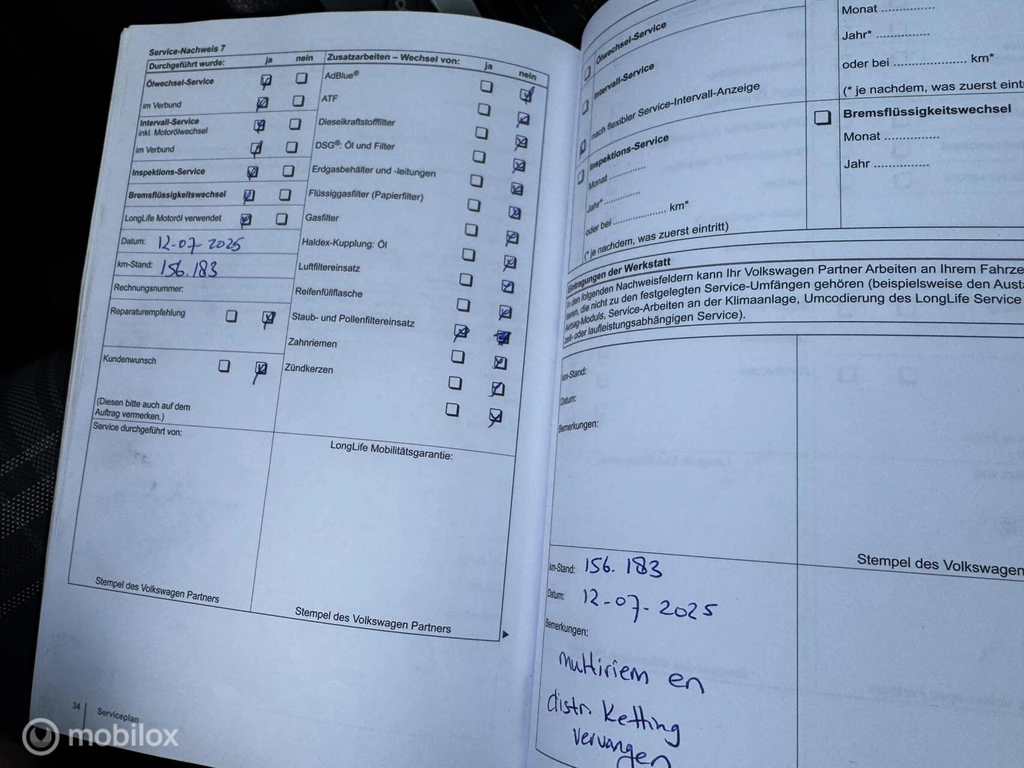 Service-Nachweis 7
Durchgeführt wurde: ja nein
Ölwechsel-Service
im Verbund
Intervall-Service
inkl. Motorölwechsel
im Verbund
Inspektions-Service
Bremsflüssigkeitswechsel
LongLife Motoröl verwendet
Datum: 12-07-2025
km-Stand: 156.183
Rechnungsnummer:
Reparaturempfehlung
Kundenwunsch
(Diesen bitte auch auf dem
Auftrag vermerken.)
Zusatzarbeiten – Wechsel von: ja nein
AdBlue®
ATF
Dieselkraftstofffilter
DSG®: Öl und Filter
Erdgasbehälter und -leitungen
Flüssiggasfilter (Papierfilter)
Gasfilter
Haldex-Kupplung: Öl
Luftfiltereinsatz
Reifenfüllflasche
Staub- und Pollenfiltereinsatz
Zahnriemen
Zündkerzen
Service durchgeführt von:
Stempel des Volkswagen Partners
LongLife Mobilitätsgarantie:
Stempel des Volkswagen Partners
34 Serviceplan
Ölwechsel-Service
Intervall-Service
nach flexibler Service-Intervall-Anzeige
Inspektions-Service
Monat ..............
Jahr* ..............
oder bei .................... km*
(* je nachdem, was zuerst eintritt)
Monat ..............
Jahr* ..............
oder bei .................... km*
(* je nachdem, was zuerst eint
Bremsflüssigkeitswechsel
Monat ..............
Jahr ..............
Eintragungen der Werkstatt
In den folgenden Nachweisfeldern kann Ihr Volkswagen Partner Arbeiten an Ihrem Fahrze
die nicht zu den festgelegten Service-Umfängen gehören (beispielsweise den Aust
Airbag-Moduls, Service-Arbeiten an der Klimaanlage, Umcodierung des LongLife Service
zeit- oder laufleistungsabhängigen Service).
km-Stand:
Datum:
Bemerkungen:
Stempel des Volkswagen
km-Stand: 156.183
Datum: 12-07-2025
Bemerkungen:
multiriem en
distr. Ketting
vervangen
mobilox